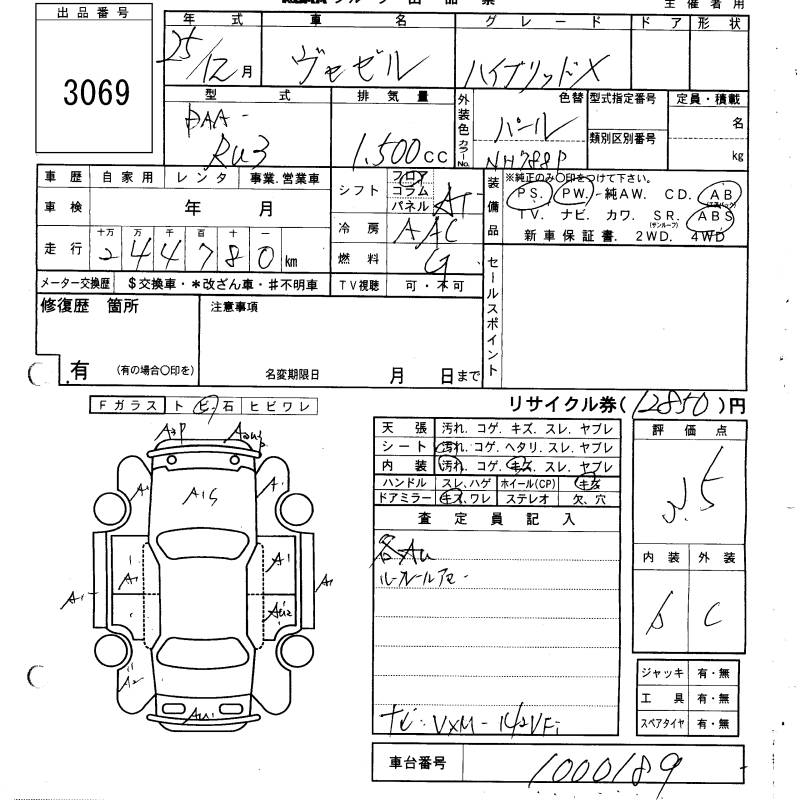 主催者用
出品番号
3069
年式 車名 グレード ドア 形状
25/12月 ヴェゼル ハイブリッドX
型式 排気量 外装色 カラーNo. 色替 型式指定番号 定員・積載
DAA-
RU3
1,500cc
パール
NH788P
類別区別番号
名
kg
車歴 自家用 レンタ 事業.営業車
シフト フロア コラム パネル AT
装備品 ※純正のみ〇印をつけて下さい。
PS. PW. 純AW. CD. AB
(エアバック)
TV. ナビ. カワ. SR. ABS
(サンルーフ)
新車保証書. 2WD. 4WD
車検 年 月
冷房 AAC
走行 十万 万 千 百 十 一
244780km
燃料 G
メーター交換歴 $交換車・*改ざん車・♯不明車
TV視聴 可・不可
セールスポイント
修復歴 箇所
注意事項
有 (有の場合〇印を)
名変期限日 月 日まで
リサイクル券(12850)円
Fガラス ト ビ.石 ヒビワレ
天張 汚れ. コゲ. キズ. スレ. ヤブレ
シート 汚れ. コゲ. ヘタリ. スレ. ヤブレ
内装 汚れ. コゲ. キズ. スレ. ヤブレ
ハンドル スレ.ハゲ ホイール(CP) キズ
ドアミラー キズ.ワレ ステレオ 欠.穴
評価点
査定員記入
各AU
内装 外装
C
A1
A1
A1
A1
A1
A1
A2
ジャッキ 有・無
工具 有・無
スペアタイヤ 有・無
ナビ:VXM-142VFi
車台番号 1000189